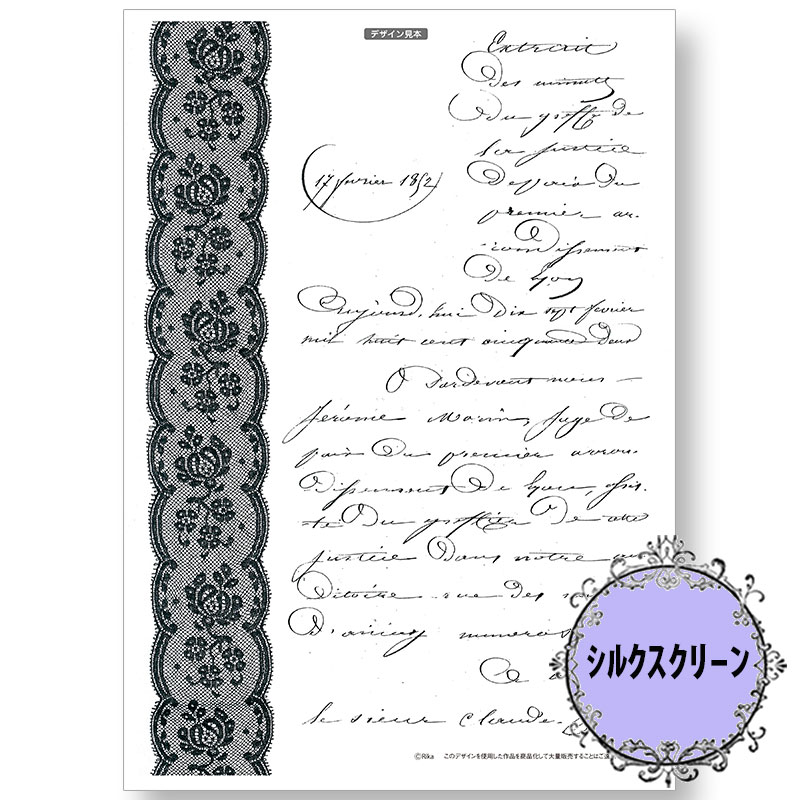 デザイン見本
Extrait
Des minutes
Du greffe de
la justice
de paix Du
premier ar-
rondissement
De Lyon
17 fevrier 1852
Aujourd'hui Dix sept fevrier
mil huit cent cinquante Deux
Pardevant nous
Jérome Morin, Juge De
paix Du premier arron-
Dissement De Lyon, assis-
té Du greffier De cette
justice Dans notre
rue des
D'ainay numéro
le sieur Claude
©Rika このデザインを使用した作品を商品化して大量販売することはご
シルクスクリーン